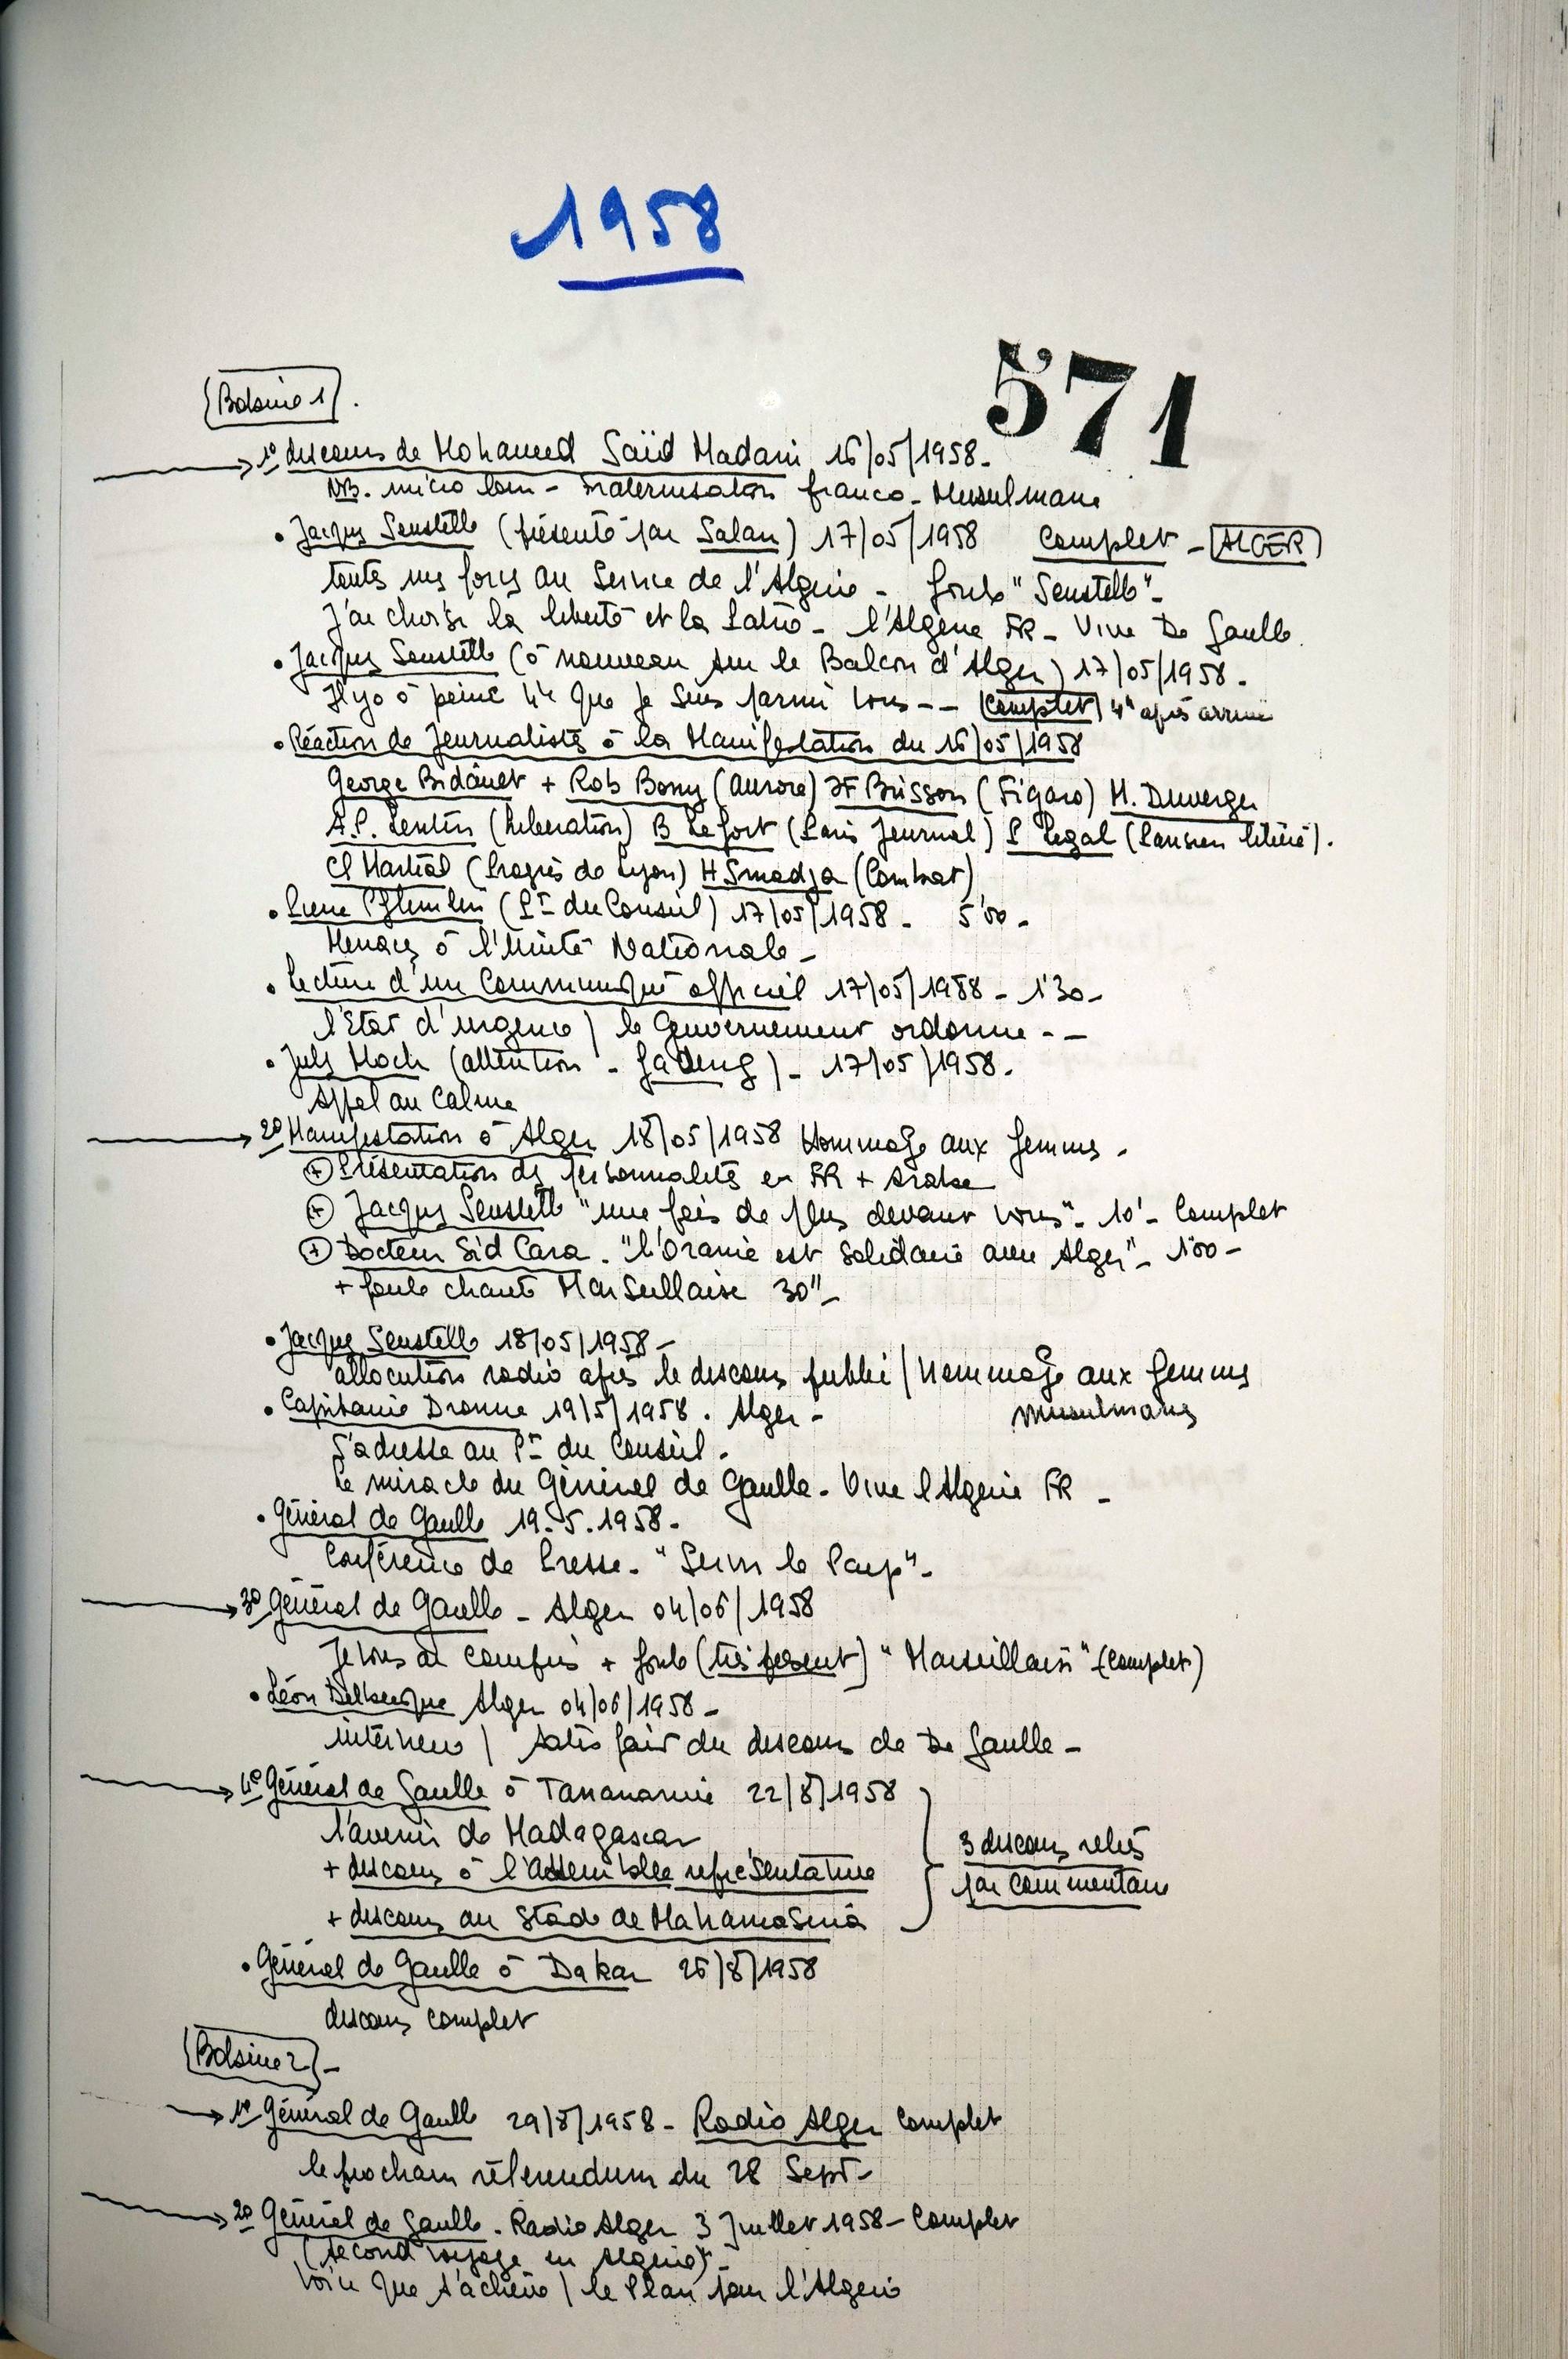 1958
571
Bobine 1.
1º discours de Mohamed Saïd Madani 16/05/1958.
NB. micro loin - Fraternisation franco-Musulmane
• Jacques Soustelle (présenté par Salan) 17/05/1958 Complet - ALGER
toutes mes forces au Service de l'Algérie - foule "Soustelle" -
J'ai choisi la liberté et la Patrie - l'Algérie FR - Vive De Gaulle.
• Jacques Soustelle (à nouveau sur le Balcon d'Alger) 17/05/1958.
Il y a à peine 4h que je suis parmi vous -- Complet 4h après arrivée
• Réaction de Journalistes à la Manifestation du 16/05/1958
George Bidault + Rob Bony (Aurore) JF Brisson (Figaro) M. Duverger
A.P. Lentin (Libération) B Lefort (Paris Journal) P Legal (Parisien libéré).
Cl Martial (Progrès de Lyon) H Smadja (Combat)
• Pierre Pflimlin (Pt du Conseil) 17/05/1958 - 5'00 -
Menaces à l'Unité Nationale -
• Lecture d'un Communiqué officiel 17/05/1958 - 1'30 -
l'Etat d'urgence / le Gouvernement ordonne --
• Jules Moch (attention - ) - 17/05/1958.
Appel au Calme
2º Manifestation à Alger 18/05/1958 Hommage aux femmes.
+ Présentation des personnalités en FR + Arabe
+ Jacques Soustelle "une fois de plus devant vous" - 10' - Complet
+ Docteur Sid Cara. "l'Oranie est Solidaire avec Alger" - 1'00 -
+ foule chante Marseillaise 30" -
• Jacques Soustelle 18/05/1958 -
allocution radio après le discours public / Hommage aux femmes
musulmanes
• Capitaine Dronne 19/5/1958. Alger -
S'adresse au Pt du Conseil.
Le miracle du Général de Gaulle. Vive l'Algérie FR -
• Général de Gaulle 19.5.1958.
Conférence de Presse. "Servir le Pays" -
3º Général de Gaulle - Alger 04/06/1958
Je vous ai compris + foule (très présent) "Marseillaise" - (complet)
• Léon Delbecque Alger 04/06/1958 -
interview / satisfait du discours de De Gaulle -
4º Général de Gaulle à Tananarive 22/8/1958
l'avenir de Madagascar
+ discours à l'Assemblée représentative
+ discours au Stade de Mahamasina
3 discours reliés
par commentaire
• Général de Gaulle à Dakar 26/8/1958
discours complet
Bobine 2 -
1º Général de Gaulle 29/8/1958 - Radio Alger Complet
le prochain référendum du 28 Sept -
2º Général de Gaulle. Radio Alger 3 Juillet 1958 - Complet
(second voyage en Algérie) -
Voici que s'achève / le Plan pour l'Algérie